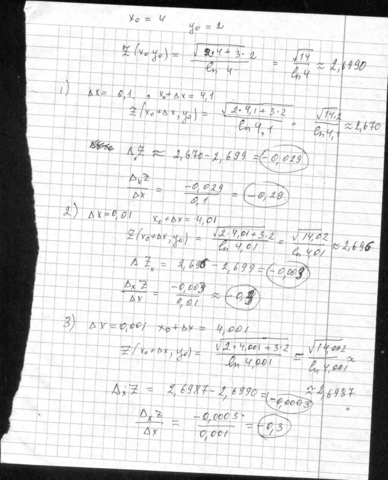 x₀ = 4 y₀ = 2
Z(x₀ y₀) = √(2·4+3·2) / ln 4 = √14 / ln 4 ≈ 2,6990
1) Δx = 0,1 x₀+Δx = 4,1
Z(x₀+Δx, y₀) = √(2·4,1+3·2) / ln 4,1 = √14,2 / ln 4,1 ≈ 2,670
Δₓz ≈ 2,670-2,699 = -0,029
Δₓz / Δx = -0,029 / 0,1 = -0,29
2) Δx=0,01 x₀+Δx = 4,01
Z(x₀+Δx, y₀) = √(2·4,01+3·2) / ln 4,01 = √14,02 / ln 4,01 ≈ 2,696
Δ Zₓ = 2,696 - 2,699 = -0,003
Δₓz / Δx = -0,003 / 0,01 ≈ -0,3
3) Δx=0,001 x₀+Δx = 4,001
Z(x₀+Δx, y₀) = √(2·4,001+3·2) / ln 4,001 = √14,002 / ln 4,001 ≈
≈ 2,6987
Δₓz = 2,6987 - 2,6990 = -0,0003
Δₓz / Δx = -0,0003 / 0,001 = -0,3